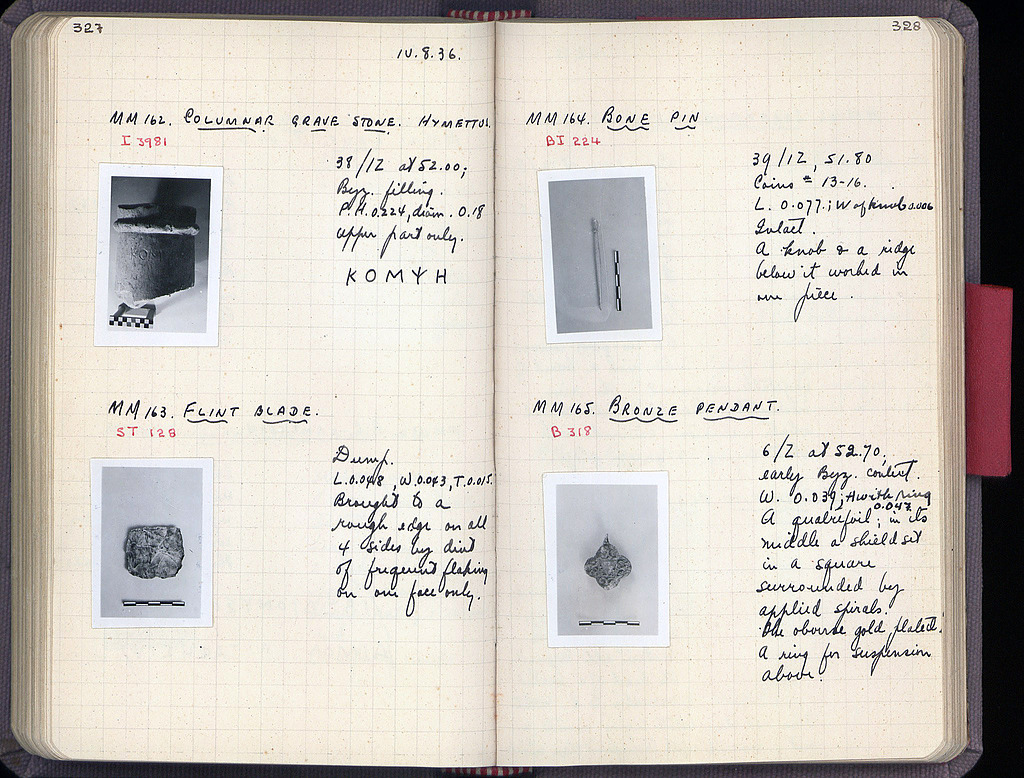 327
IV.8.36.
MM 162. COLUMNAR GRAVE STONE. HYMETTUS.
I 3981
38/IZ at 52.00;
Byz. filling.
P.H. 0.224, diam. 0.18
upper part only.
ΚΟΜΨΗ
MM 163. FLINT BLADE.
ST 128
Dump.
L. 0.048, W. 0.043, T. 0.015.
Brought to a
rough edge on all
4 sides by dint
of frequent flaking
on one face only.
328
MM 164. BONE PIN
BI 224
39/IZ, 51.80
Coins # 13-16.
L. 0.077; W of knob 0.006
Intact.
A knob & a ridge
below it worked in
one piece.
MM 165. BRONZE PENDANT.
B 318
6/Z at 52.70,
early Byz. context.
W. 0.039; H with ring
0.047
A quatrefoil; in its
middle a shield set
in a square
surrounded by
applied spirals.
The obverse gold plated.
A ring for suspension
above.